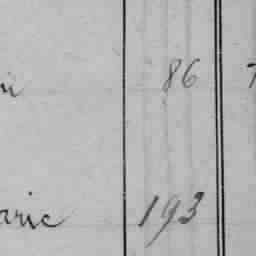 86
arie 193